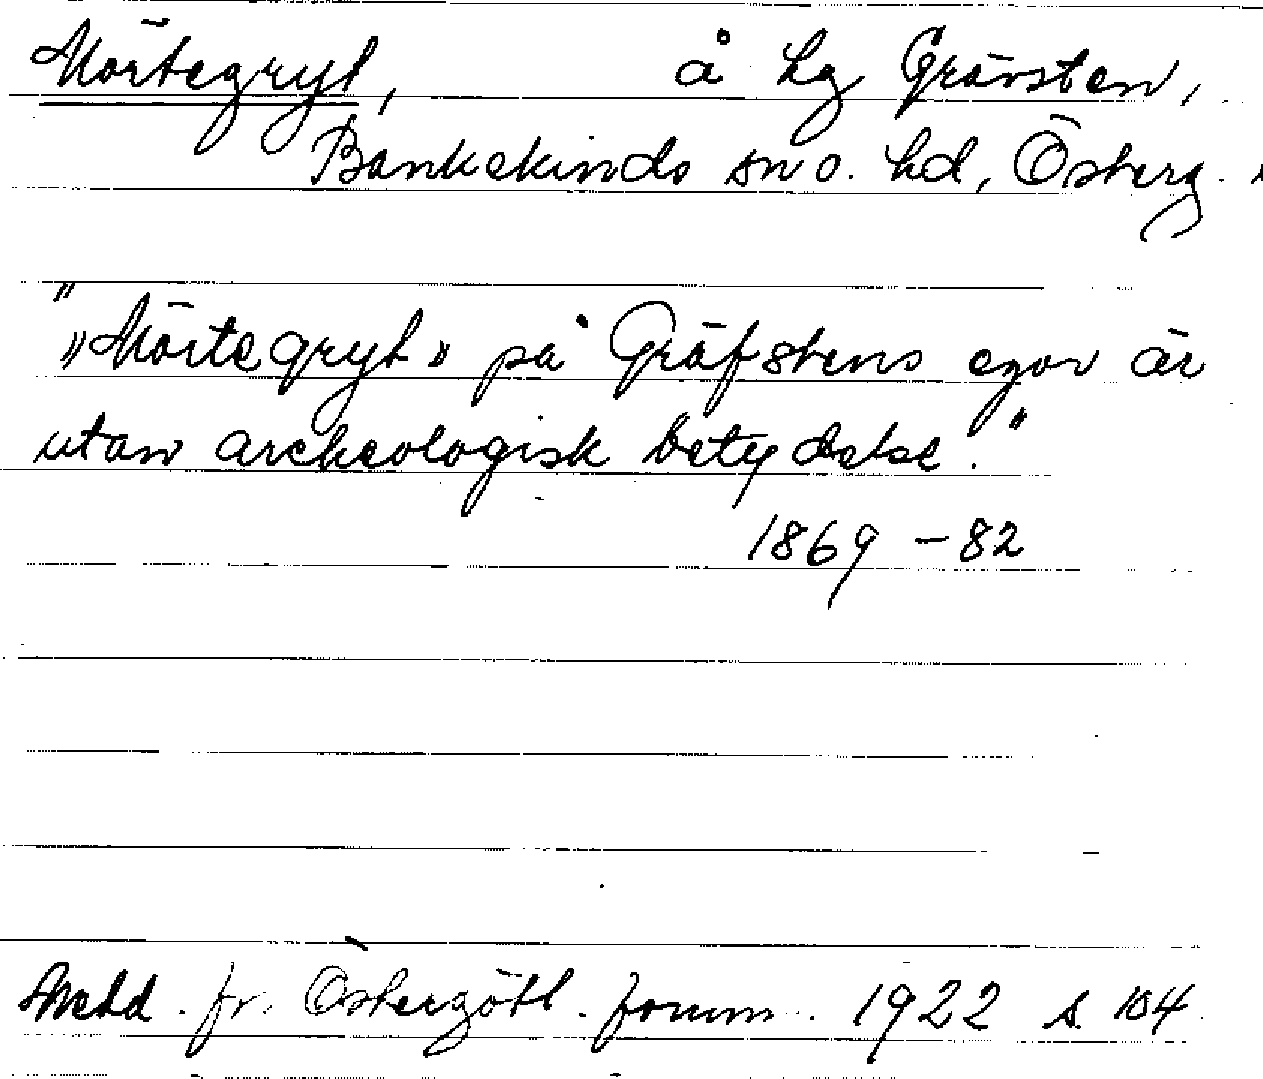 Mörtegryt, å hg Grävsten,
Bankekinds sn o. hd, Österg.
"»Mörtegryt» på Gräfstens egor är
utan archeologisk betydelse."
1869 – 82
Medd. fr. Östergötl. fornm. 1922 s. 104